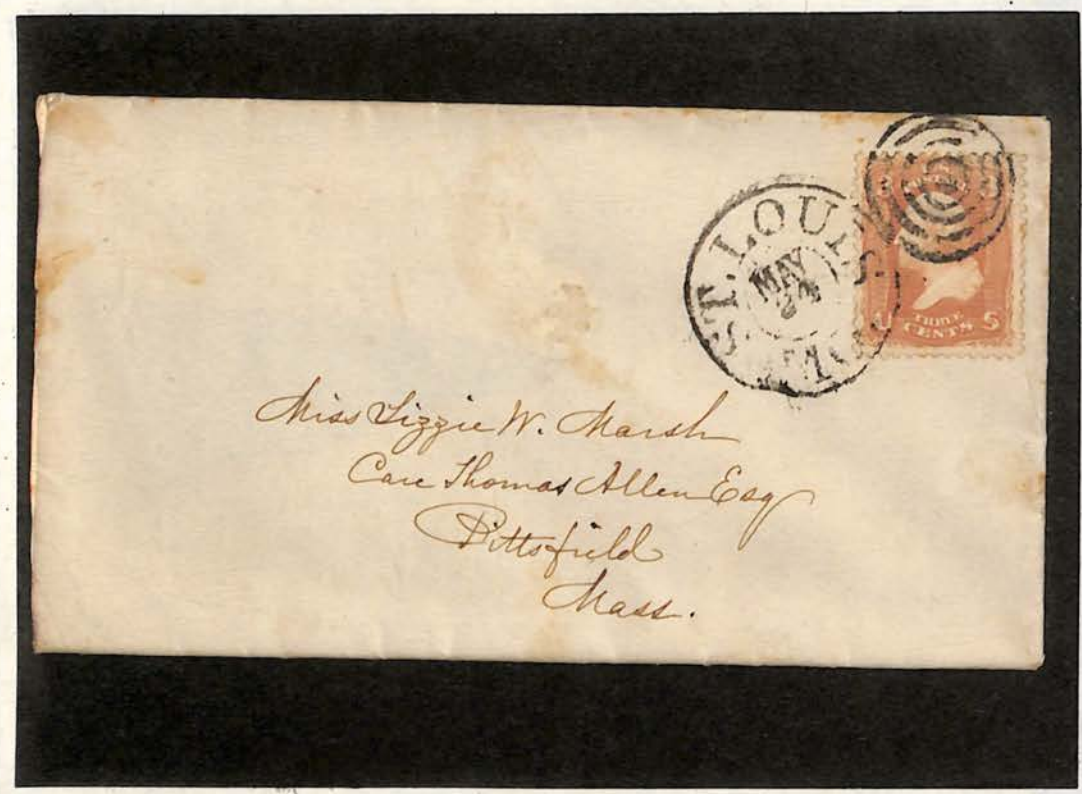 ST. LOUIS
MAY
24
MO.
U S
THREE
CENTS
Miss Lizzie W. Marsh
Care Thomas Allen Esq
Pittsfield
Mass.